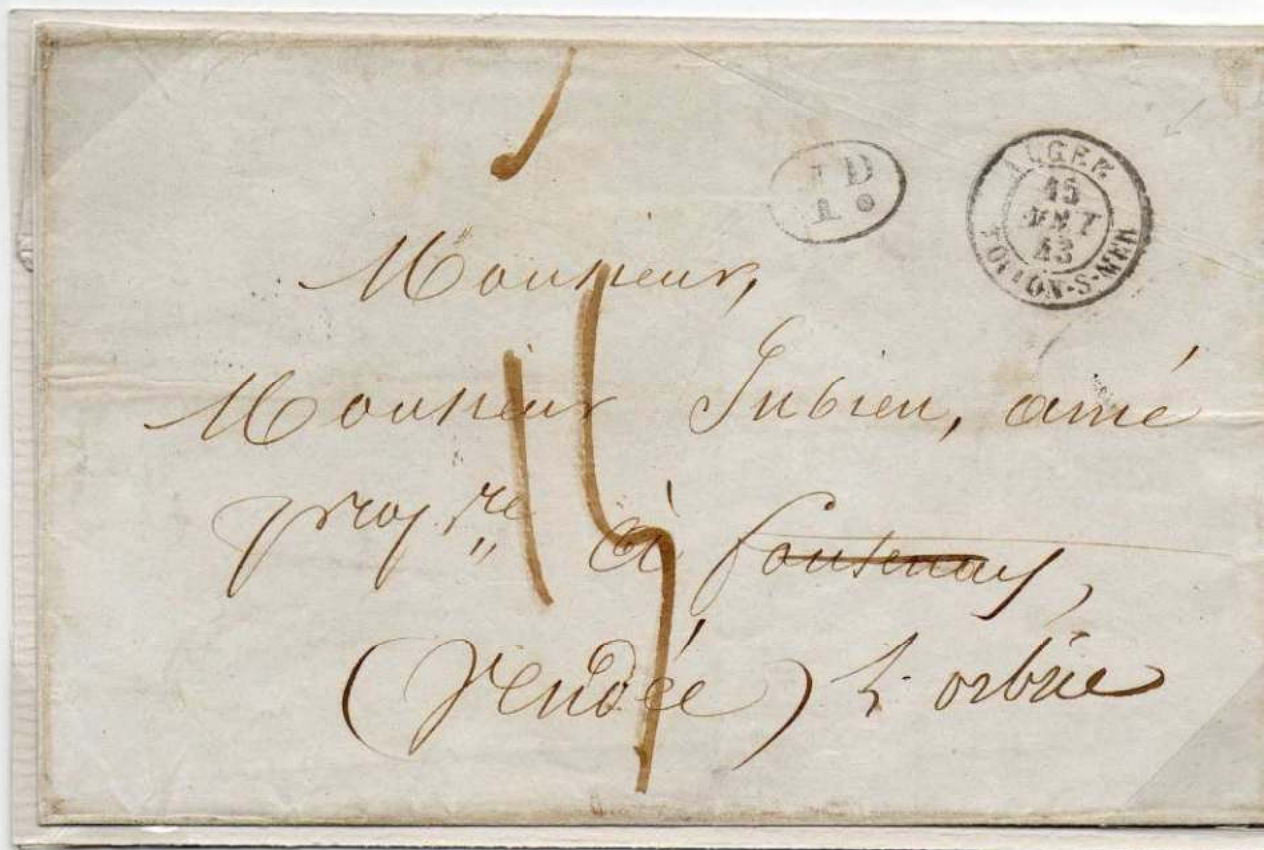 1 D
1 •
ALGER
15
43
TOULON-S-MER
Monsieur,
Monsieur Jubien, ainé
prop.re à fontenay,
(Vendée) L'orbrie
15